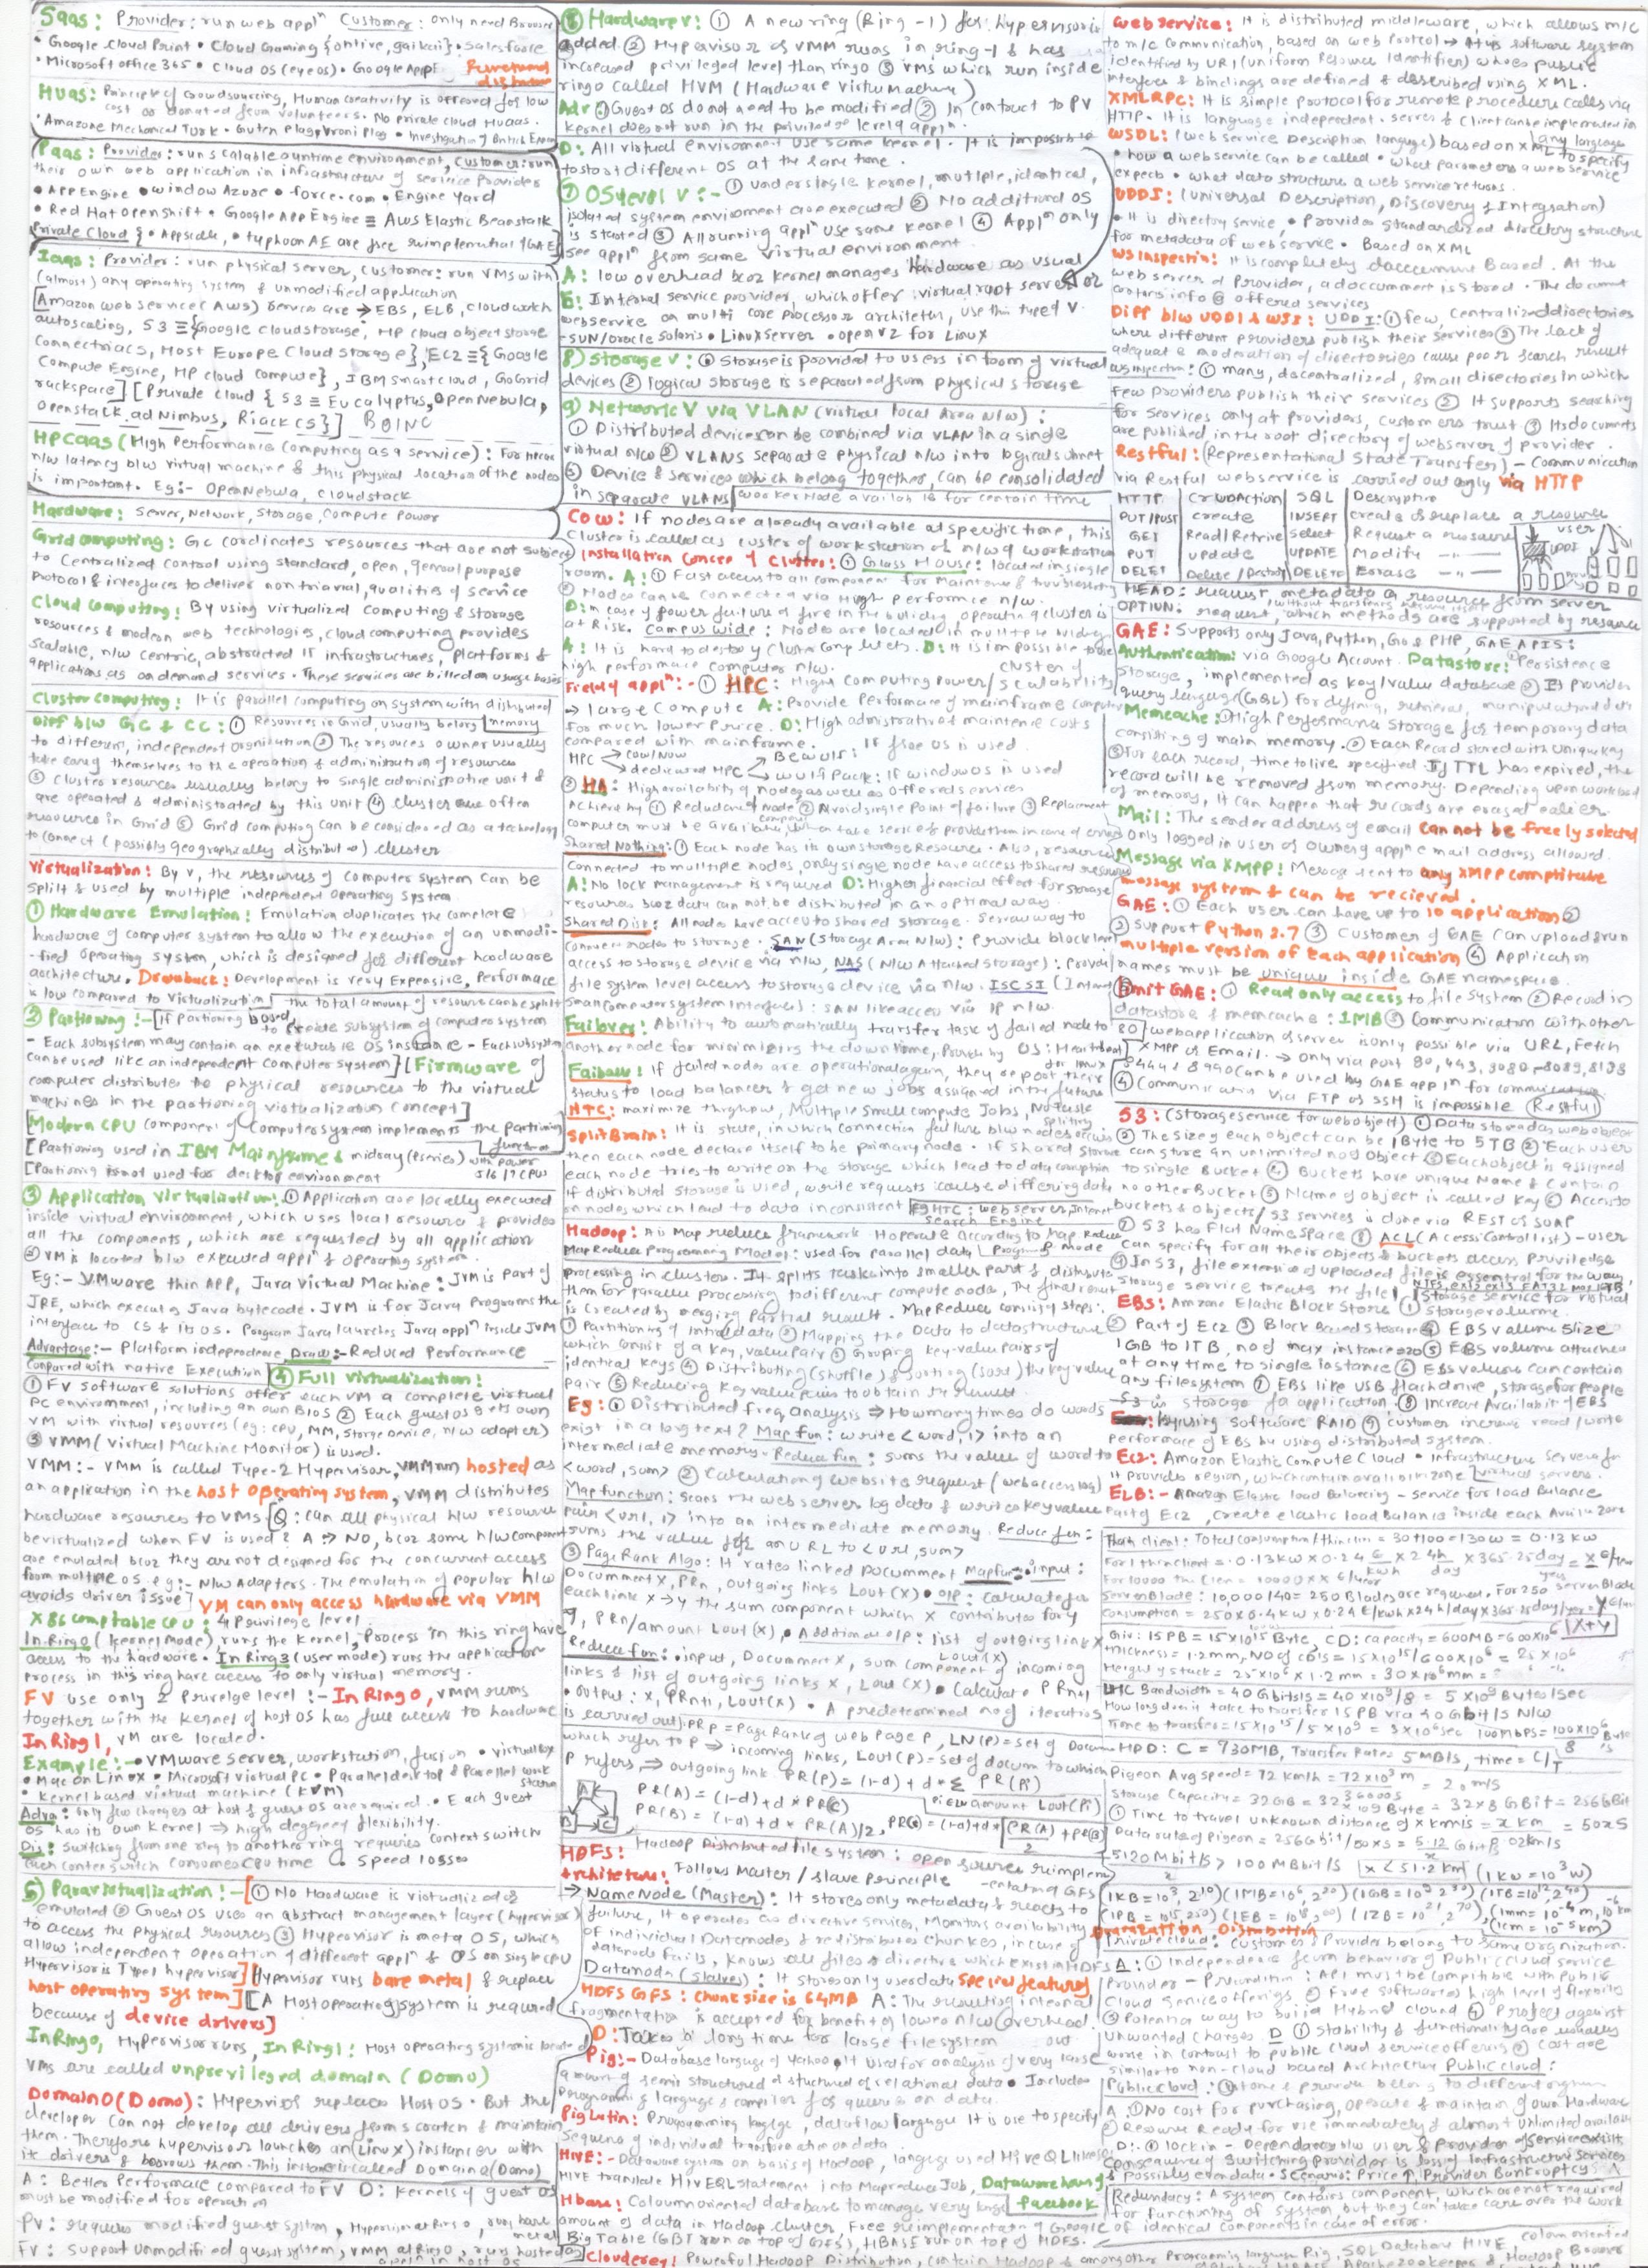 SaaS: Provider: run web appln Customer: only need Browser
• Google Cloud Print • Cloud Gaming {onlive, gaikai} • Salesforce
• Microsoft office 365 • Cloud OS (eyeos) • Google Apps
HuaaS: Principle of Crowdsourcing, Human creativity is offered for low
cost or donated from volunteers. No private cloud Huaas.
• Amazone Mechanical Turk • Guten Plag, Vroni Plag • Investigation of British
PaaS: Provider: run scalable runtime environment, Customer: run
their own web application in infrastructure of service Provider
• APP Engine • window Azure • force.com • Engine Yard
• Red Hat Openshift • Google App Engine ≡ AWS Elastic Beanstalk
Private Cloud { • Appscale, • typhoon AE are free reimplementation of GAE}
Iaas: Provider: run physical server, Customer: run VMs with
(almost) any operating system & unmodified application
[Amazon web service (AWS) Services are → EBS, ELB, Cloudwatch
autoscaling, S3 ≡ {Google cloud storage, HP cloud object storage
Connectria CS, Host Europe Cloud Storage}, EC2 ≡ {Google
Compute Engine, HP cloud compute}, IBM smartcloud, GoGrid
rackspace] [Private cloud { S3 ≡ Eucalyptus, OpenNebula,
Openstack and Nimbus, Riack CS}] BOINC
HPCaas (High Performance Computing as a service): For HPCaas
n/w latency b/w virtual machine & this physical location of the nodes
is important. Eg:- OpenNebula, Cloudstack
Hardware: Server, Network, Storage, Compute Power
Grid computing: GC cordinates resources that are not subject
to Centralized control using standard, open, general purpose
Protocol & interfaces to deliver nontrivial, qualities of service
Cloud Computing: By using virtualized computing & storage
resources & modern web technologies, cloud computing provides
scalable, n/w centric, abstracted IT infrastructures, platforms &
applications as on demand services. These services are billed on usage bases
Cluster computing: It is parallel computing on system with distributed memory
Diff b/w GC & CC: ① Resources in Grid, usually belong
to different, independent orgnisation ② The resources owner usually
take care themselves to the operation & administration of resources
③ Cluster resources usually belong to single administrative unit &
are operated & administrated by this unit ④ cluster are often
resource in Grid ⑤ Grid computing can be considered as a technology
to connect (possibly geographically distributed) cluster
Virtualization: By V, the resources of Computer system can be
split & used by multiple independent Operating System
① Hardware Emulation: Emulation duplicates the complete
hardware of computer system to allow the execution of an unmodi-
-fied operating system, which is designed for different hardware
architecture. Drawback: Development is very Expensive, Performace
is low compared to Virtualization
② Partioning:- [If Partioning is used, the total amount of resource can be split
to create subsystem of computer system
- Each subsystem may contain an executable OS instance - Each subsystem
can be used like an independent computer system] [Firmware of
computer distributes the physical resources to the virtual
machines in the partioning virtualization Concept]
[Modern CPU component of Computer system implements the partioning function
[Partioning used in IBM Mainframe & midray (Pseries) with power 5/6/7 CPUs
[Partioning is not used for desktop environment
③ Application virtualization: ① Application are locally executed
inside virtual environment, which uses local resource & provides
all the components, which are requested by all application
② VM is located b/w executed appln & operating system
Eg:- VMware thin APP, Java Virtual Machine: JVM is part of
JRE, which executes Java bytecode. JVM is for Java Programs the
interface to CS & its OS. Program Java launches Java appln inside JVM
Advantage:- Platform independence, Draw:- Reduced Performance
Compared with native Execution
④ Full virtualization:
① FV software solutions offer each VM a complete virtual
PC environment, including an own BIOS ② Each guest OS gets own
VM with virtual resources (eg: CPU, MM, Storage Device, n/w adapter)
③ VMM (Virtual Machine Monitor) is used.
VMM:- VMM is called Type-2 Hypervisor, VMM run hosted as
an application in the host operating system, VMM distributes
hardware resources to VMs {Q: can all physical h/w resource
be virtualized when FV is used? A => NO, bcoz some h/w component
are emulated bcoz they are not designed for the concurrent access
from multiple OS. eg:- N/w Adapters. The emulation of popular h/w
avoids driver issue] VM can only access hardware via VMM
X86 comptable CPU: 4 privilege level.
In Ring 0 (kernel Mode), runs the kernel, process in this ring have
access to the hardware. In Ring 3 (user mode) runs the application
process in this ring have access to only virtual memory.
FV use only 2 Privelge level:- In Ring 0, VMM runs
together with the kernel of host OS has full access to hardware
In Ring 1, VM are located.
Example:- • VMware server, workstation, fusion • virtualbox
• Mac on Linux • Microsoft Virtual PC • Parallel desktop & Parallel work station
• kernel based virtual machine (KVM)
Adva: Only few changes at host & guest OS are required. • Each guest
OS has its own kernel => high degree of flexibility.
Dis: Switching from one ring to another ring requires context switch
each context switch consumes CPU time & speed losses
⑤ Paravirtualization:- [① No Hardware is virtualized or
emulated ② Guest OS uses an abstract management layer (hypervisor)
to access the physical resources ③ Hypervisor is meta OS, which
allow independent operation of different appln & OS on single CPU
Hypervisor is Type1 hypervisor] [Hypervisor runs bare metal & replace
host operating system] [A Host operating system is required
because of device drivers]
In Ring 0, Hypervisor runs, In Ring 1: Host operating system is located
VMs are called unprevileged domain (DomU)
Domain0 (Dom0): Hypervisor replaces Host OS. But the
developer can not develop all drivers from scratch & maintain
them. Therefore hypervisor launches an (Linux) instances with
it drivers & borrows them. This instance is called Domain0 (Dom0)
A: Better Performace compared to FV D: Kernels of guest OS
must be modified for operation
PV: requires modified guest system, Hypervisor at Ring 0, runs bare metal
FV: Support unmodified guest system, VMM at Ring 0, runs hosted
⑥ Hardware V: ① A new ring (Ring -1) for hypervisor is
added. ② Hypervisor or VMM runs in ring -1 & has
increased privileged level than ring 0 ③ VMs which run inside
ring 0 called HVM (Hardware virtu Machine)
Adv: ① Guest OS do not need to be modified ② In contrast to PV
kernel does not run in the privilege level of appln.
D: All virtual enviroment use same kernel. It is impossible
to start different OS at the same time.
⑦ OS level V:- ① Under single kernel, mutlple, identical,
isolated system enviroment are executed ② No additional OS
is started ③ All running appln use same kernel ④ Appln only
see appln from same virtual environment
A: low overhead bcoz kernel manages hardware as usual
E: Internal service provider, which offer virtual root server or
webservice on multi core processor architetur, use this type of V.
- SUN/Oracle Solaris • Linux Server • open VZ for Linux
8) Storage V: ① Storage is provided to users in form of virtual
devices ② logical storage is separated from physical storage
9) Network V via VLAN (virtual local Area N/w):
① Distributed devices can be combined via VLAN in a single
virtual n/w ② VLANS separate physical n/w into logical subnet
③ Device & services which belong together, can be consolidated
in separate VLANS [worker Node available for certain time
COW: If nodes are already available at specific time, this
Cluster is called as cluster of workstation or n/w of workstation
Installation Concept of Cluster: ① Glass House: located in single
room. A: ① Fast access to all component for Maintaine & trubleshooting
② Nodes can be connected via High Performce n/w.
D: In case of power failure or fire in the building, operation of cluster is
at Risk. Campus wide: Nodes are located in multiple buildings
A: It is hard to destroy Cluster Completely. D: It is impossible to use
high performace computer n/w.
Field of appln:- ① HPC: High Computing power/scalability
→ large Compute A: Provide Performace of mainframe computer
for much lower Price. D: High admistrative & maintence costs
compared with mainframe.
HPC → COW/NOW → dedicated HPC → Beowulf: If free OS is used → wulfpack: If windows OS is used
② HA: High availability of nodes as well as offered services
Achieve by ① Redundance of Node ② Avoid single Point of failure ③ Replacement
computer must be available, when take service & provide them in case of error
Shared Nothing: ① Each node has its own storage Resource. Also, resources
Connected to multiple nodes, only single node have access to shared resource
A: No lock management is required D: Higher financial effort for storage
resources bcoz data can not be distributed in an optimal way.
Shared Disk: All nodes have access to shared storage. Several way to
Connect nodes to storage. SAN (Storage Area N/w): Provide block level
access to storage device via n/w, NAS (N/w Attached Storage): Provide
file system level access to storage device via n/w. ISCSI (Internet
Small Computer system Interface): SAN like access via IP n/w.
Failover: Ability to automatically transfer task of failed node to
another node for minimizing the downtime, Proven by OS: Heartbeat for linux
Failback: If failed nodes are operational again, they report their
status to load balancer & get new jobs assigned in the future
HTC: maximize thrghput, Multiple small compute Jobs, No task splitting
Split Brain: It is state, in which connection failure b/w nodes occurs
then each node declare itself to be primary node. If shared Storage
each node tries to write on the storage which lead to data corruption
If distributed storage is used, write requests cause differing data
on nodes which lead to data inconsistent [Eg HTC: web server, Internet Search Engine
Hadoop: A is Map reduce framework. Hoperate according to Map Reduce
Map Reduce Programming Model: used for parallel data
processing in cluster. It splits task into smaller part & distribute
them for parallel processing to different compute node, The final result
is created by merging partial result. MapReduce consist steps:
① Partitioning of initial data ② Mapping the Data to datastructure
which consist of a key, value Pair ③ Grouping key-value Pairs of
identical keys ④ Distributing (shuffle) & sorting (sort) the key value
pair ⑤ Reducing key value pairs to obtain the result
Eg: ① Distributed freq analysis => How many times do words
exist in a long text? Map fun: write <word, 1> into an
intermediate memory. Reduce fun: sums the value of word to
<word, sum> ② Calculation of website request (web access log)
Map function: Scans the web server log data & writes key value
pair <url, 1> into an intermediate memory. Reduce fun:
sums the value for an URL to <url, sum>
③ PageRank Algo: It rates linked Document Map fun: input:
Document X, PRn, outgoing links Lout(X) • O/P: calculate for
each link x → y the sum component which x contributes for y
y, PRn/amount Lout(X), • Additional O/P: list of outgoing link x Lout(X)
Reduce fun: • input, Document X, sum component of incoming
links & list of outgoing links X, Lout(X) • Calculate PRn+1
• output: X, PRn+1, Lout(X) • A predetermined no of iteration
is carried out). PR p = PageRank of web Page P, LN(P) = set of Docum
which refer to P => incoming links, Lout(P) = set of docum to which
P refers => outgoing link PR(P) = (1-d) + d * Σ PR(Pi) / amount Lout(Pi)
PR(A) = (1-d) + d * PR(C)
PR(B) = (1-d) + d * PR(A)/2, PR(C) = (1-d) + d * [PR(A)/2 + PR(B)]
HDFS: Hadoop Distributed file system: open source reimplementation of GFS
Architeture: Follows Master / slave Principle
→ NameNode (Master): It stores only metadata & reacts to
failure, It operates as directive services, Monitors availability
of individual Datanodes & redistributes Chunkes, in case of
datanode fails, knows all files & directories which exist in HDFS
Datanode (slaves): It stores only user data Special features
HDFS GFS: Chunk size is 64MB A: The resulting internal
fragmentation is accepted for benefit of lower n/w Overhead.
D: Takes a long time for large filesystem
Pig:- Database language of Yahoo. It used for analysis of very large
amount of semi structured or structured or relational data • Includes
programming language & compiler for queries on data
Pig Latin: Programming language, dataflow language It is use to specify
sequence of individual transformation on data
HIVE:- Dataware system on basis of Hadoop, language used HiveQL
HIVE translate HiveQL statement into Mapreduce Job, Dataware hang
Hbase: Coloumn oriented database to manage very large Facebook
amount of data in Hadoop cluster, Free reimplementation of Google
Big Table (GBT run on top of GFS), HBASE run on top of HDFS.
Cloudera: Powerful Hadoop Distribution, contain Hadoop & among other Programing language Pig, SQL Database HIVE,
Web Service: It is distributed middleware, which allows m/c
to m/c Communication, based on web Portcol → It is software system
identified by URI (uniform Resource Identifier) whoes public
interfaces & bindings are defined & described using XML.
XMLRPC: It is simple protocol for remote procedure calls via
HTTP. It is language independent. server & Client can be implemented in any language
WSDL: (web Service Description language) based on XML to specify
• how a web service can be called • what parameters a web service
expects • what data structure a web service returns.
UDDI: (Universal Description, Discovery & Integration)
• It is directory service • Provides Standardized directory structure
for metadata of webservice • Based on XML
WS Inspection: It is completely document Based. At the
web server of Provider, a document is stored. The document
contains info @ offered services
Diff b/w UDDI & WSI: UDDI: ① few, Centralized directories
where different providers publish their services ② The lack of
adequate moderation of directories cause poor search result
WSInspection: ① many, decentralized, small directories in which
few Providers publish their services ② It supports searching
for services only at providers, customers trust ③ Its documents
are published in the root directory of webserver of provider.
Restful: (Representational State Transfer) - Communication
via Restful webservice is carried out only via HTTP
HTTP | CrudAction | SQL | Description
PUT/POST | create | INSERT | create or replace a resource
GET | Read/Retrive | Select | Request a resource
PUT | update | UPDATE | Modify -"-
DELET | Delete/Destroy | DELETE | Erase -"-
user
UDDI
HEAD: request metadata a resource from server
OPTION: request, which methods are supported by resource
GAE: Supports only Java, Python, Go & PHP, GAE APIS:
Authentication: via Google Account. Datastore: ① Persistence
storage, implemented as key/value database ② It provides
query language (GQL) for defining, retrieval, manipulation of data
Memcache: ① High Performans storage for temporary data
consisting of main memory. ② Each Record stored with Unique key
③ For each record, time to live specified. If TTL has expired, the
record will be removed from memory. Depending upon workload
of memory, It can happen that records are erased ealier.
Mail: The sender address of email can not be freely selected
Only logged in user or owner of appln e mail address allowed.
Message via XMPP: Message sent to any XMPP comptitube
message system & can be recieved.
GAE: ① Each user can have up to 10 application ②
② Support Python 2.7 ③ Customer of GAE can upload & run
multiple version of each application ④ Application
names must be unique inside GAE namespace
limit GAE: ① Read only access to file system ② Record in
datastore & memcache: 1MB ③ Communication with other
webapplication or server is only possible via URL, Fetch
XMPP or Email. → Only via port 80, 443, 3080-8089, 8188
8444 & 8990 can be used by GAE appln for communication
④ Communication via FTP or SSH is impossible (Restful)
S3: (storage service for web object) ① Data stored as web object
② The size of each object can be 1Byte to 5TB ② Each user
can store an unlimited no of object ③ Each object is assigned
to single Bucket ④ Buckets have unique Name & contain
no other Bucket ⑤ Name of object is called key ⑥ Access to
buckets & objects/S3 services is done via REST or SOAP
⑦ S3 has Flat Name Space ⑧ ACL (Access Control list) - user
Can specify for all their objects & buckets access Priviledge
⑨ In S3, file extension of uploaded file is essential for the way
Storage service treats the file
EBS: Amzone Elastic Block Store ① Storage Service for virtual storage volume
② Part of EC2 ③ Block Based Storage ④ EBS volume size
1GB to 1TB, no of max instance 20 ⑤ EBS volume attached
at any time to single instance ⑥ EBS volume can contain
any filesystem ⑦ EBS like USB flach drive, storage for people
S3 is storage for application. ⑧ Increase Availabit of EBS
by using Software RAID ⑨ customer increase read/write
Performace of EBS by using distributed system.
EC2: Amazon Elastic Compute Cloud • Infrastructure Service for virtual servers.
It provides region, which contain availability zone
ELB:- Amazon Elastic load Balancing - Service for load Balance
Part of EC2, create elastic load Balancer inside each Avail. Zone
Thin client: Total consumption/thinclien = 30+100=130W = 0.13 kW
For 1 thin client = 0.13kW x 0.24 €/kWh x 24h/day x 365.25 day/year = x €/year
For 10000 thin Clien = 10000 x x €/year
Server Blade: 10,000/40 = 250 Blades are required. For 250 server Blade
Consumption = 250 x 0.4 KW x 0.24 €/kWh x 24h/day x 365.25 day/year = y €/year
X+Y
Giv: 15PB = 15x10^15 Byte, CD: capacity = 600MB = 600x10^6
thickness = 1.2mm, NO of CDIS = 15x10^15/600x10^6 = 25x10^6
Height of stack = 25x10^6 x 1.2 mm = 30x10^6mm =
LHC Bandwidth = 40Gbits/s = 40 x10^9/8 = 5 x10^9 Bytes/sec
How long does it take to transfer 15 PB via 40 Gbit/s N/W
Time to transfer = 15x10^15/5x10^9 = 3x10^6 sec 100MbPS = 100x10^6/8 Byte/s
HDD: C = 730MB, Transfer Rate = 5MB/S, time = C/T
Pigeon Avg speed = 72 km/h = 72x10^3 m/3600s = 20 m/s
Storage Capacity = 32GB = 32x10^9 Byte = 32x8 GBit = 256GBit
① Time to travel unknown distance of x km/s = x km/.02km/s = 50xs
Data rate of pigeon = 256Gbit/50xS = 5.12/x Gbit/s
5120Mbit/s/x > 100MBbit/s [x < 51.2 km] (1kW = 10^3 W)
(1KB = 10^3, 2^10) (1MB = 10^6, 2^20) (1GB = 10^9, 2^30) (1TB = 10^12, 2^40)
(1PB = 10^15, 2^50) (1EB = 10^18, 2^60) (1ZB = 10^21, 2^70)
Private cloud: Customers & Provider belong to same organization.
A: ① Independence from behavior of Public cloud service
Provider - Precondition: API must be compitible with public
Cloud service offerings ② Free software & high level of flexibility
③ Potential way to build Hybrid cloud ④ Project against
unwanted changes D ① Stability & functionality are usually
worse in contrast to public cloud service offering ② Cost are
similar to non-cloud based Architecture Public cloud:
Public cloud: ① user & provider belong to different orgnism
A. ① No cost for purchasing, operate & maintain of own Hardware
② Resource Ready for use immediately & almost unlimited available
D: ① lock in - Dependance b/w user & Provider of service exist
Consequence of switching provider is loss of Infrastructure services
& possibly even data. Scenario: Price ↑, Provider Bankruptcy
Redundacy: A system contains component, which are not required
for functioning of system, but they can take care over the work
of identical components in case of error.